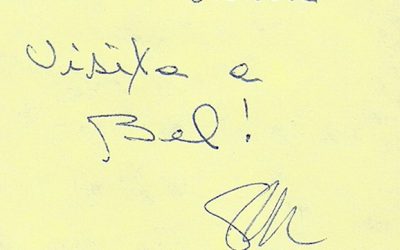 Visita a
Bel!